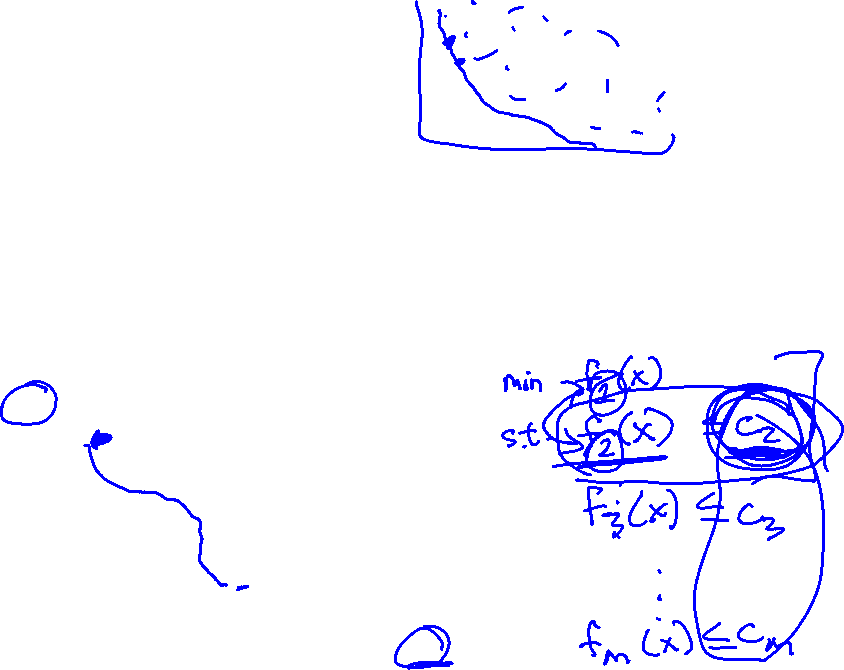 min f₂(x)
s.t. f₂(x) ≤ c₂
f₃(x) ≤ c₃
⋮
fₘ(x) ≤ cₘ